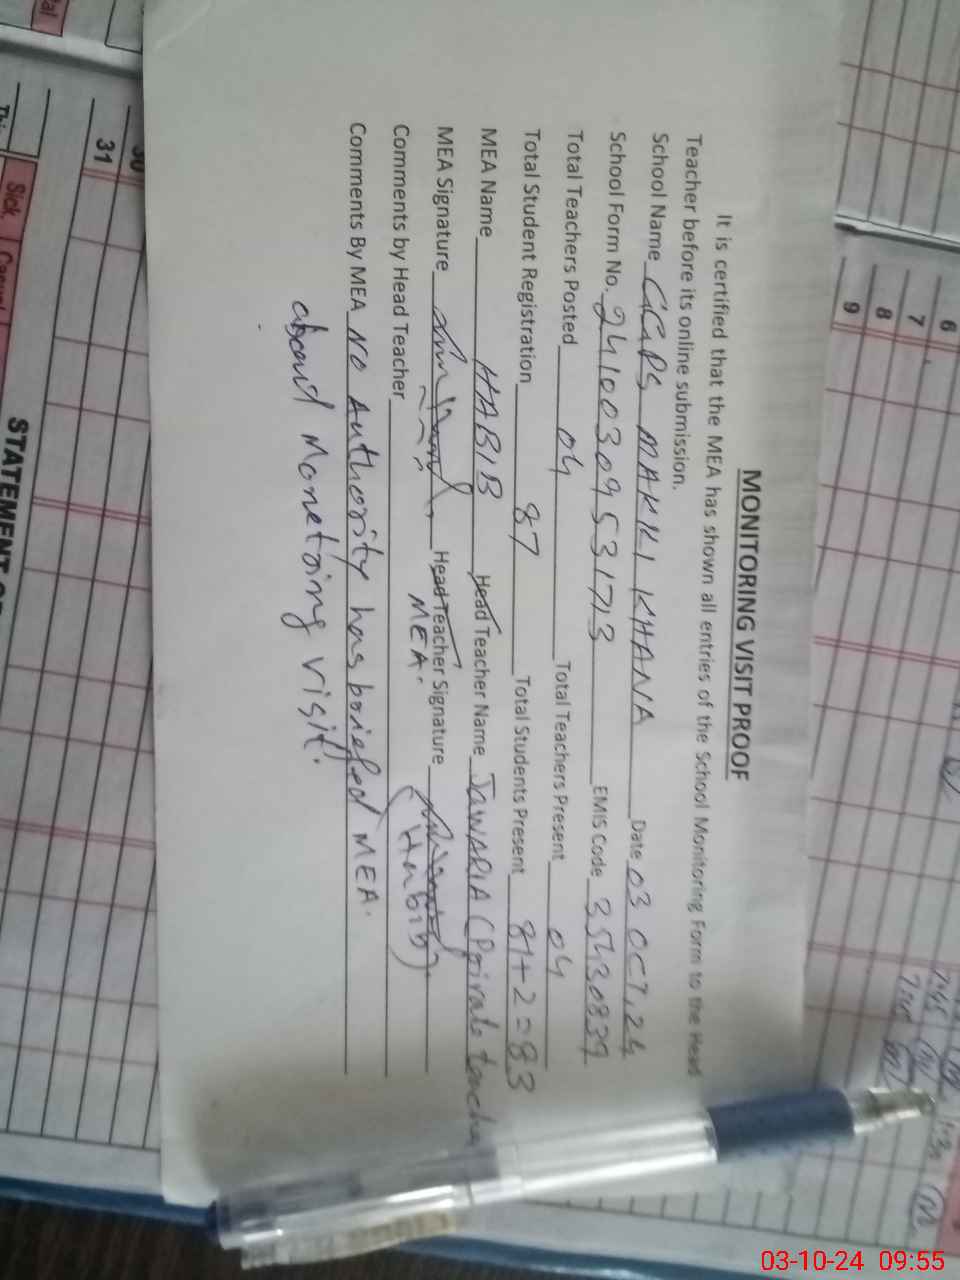 MONITORING VISIT PROOF
It is certified that the MEA has shown all entries of the School Monitoring Form to the Head
Teacher before its online submission.
School Name GGPS MAKKI KHANA Date 03 OCT, 24
School Form No. 24100309531713 EMIS Code 35430839
Total Teachers Posted 04 Total Teachers Present 04
Total Student Registration 87 Total Students Present 81+2=83
MEA Name HABIB Head Teacher Name JAWARIA (Private teacher
MEA Signature Head Teacher Signature
MEA. (Habib)
Comments by Head Teacher
Comments By MEA No Authority has briefed MEA.
about Monetoring visit.
6
7
8
9
30
31
Sick
Casual
STATEMENT
03-10-24 09:55